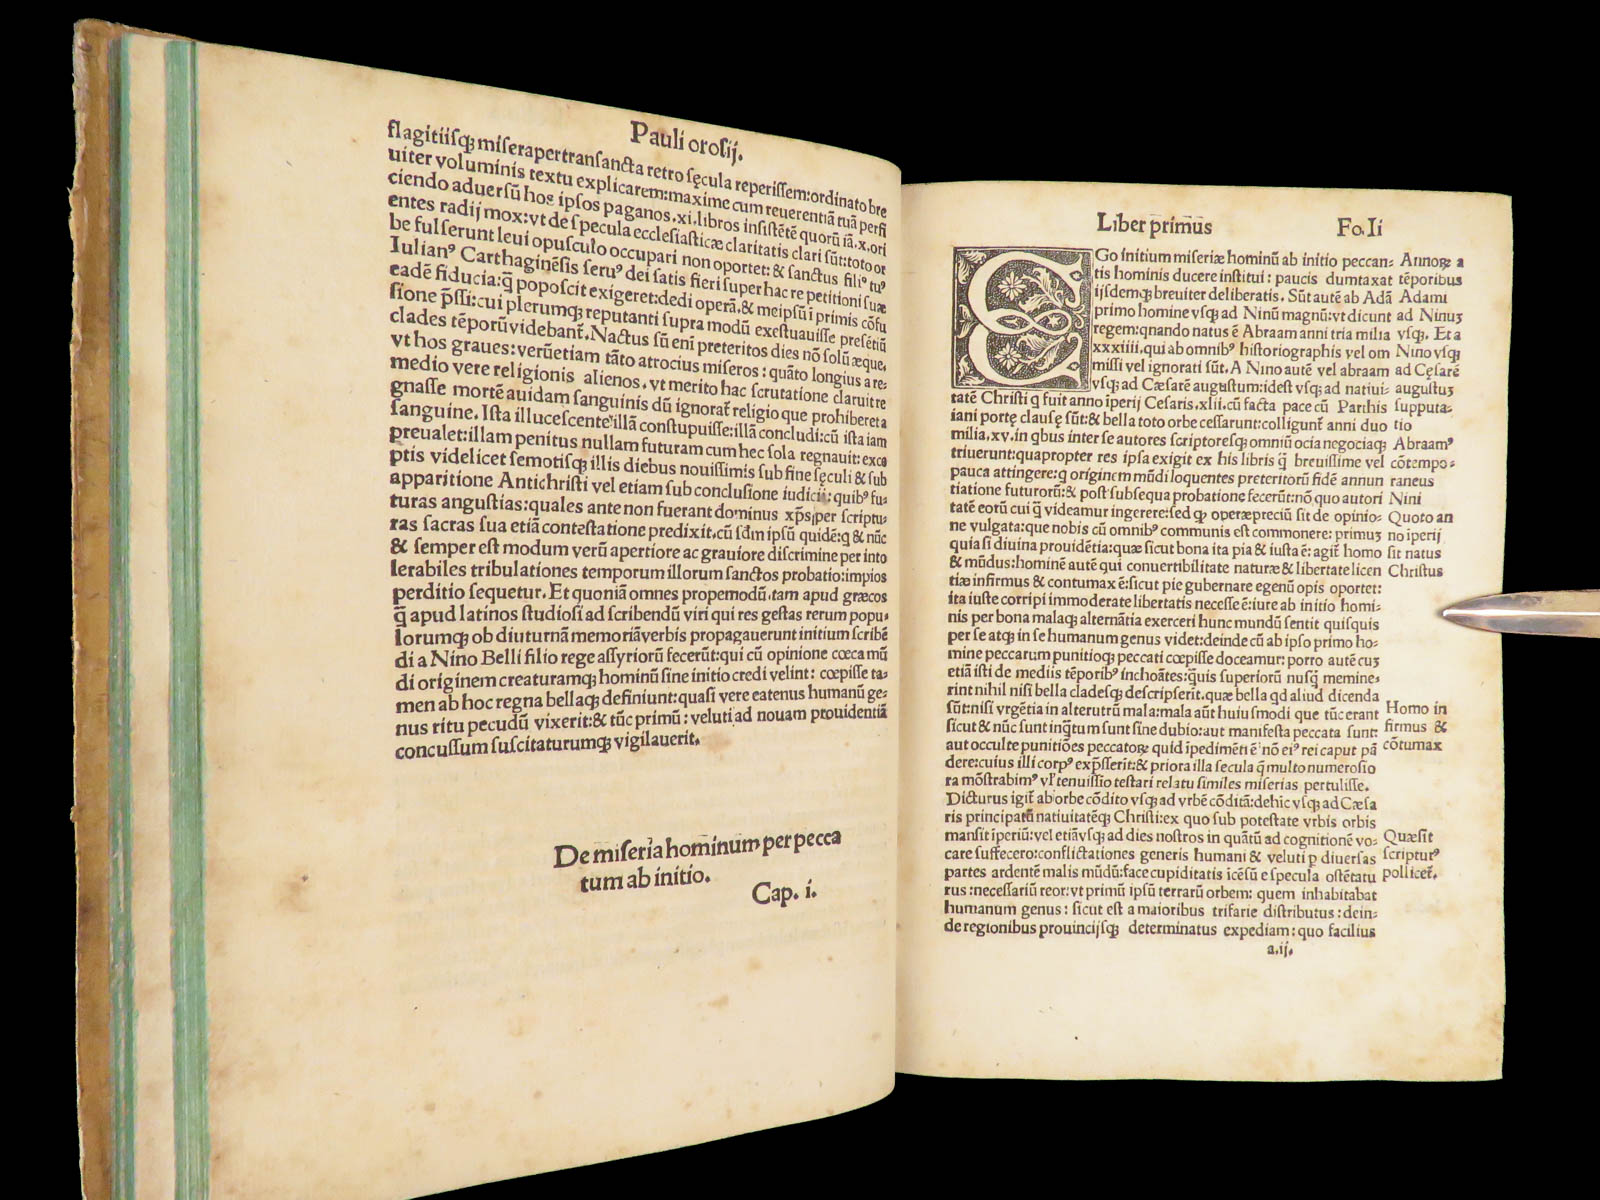 Pauli orosij.
flagitiisq; miserapertransacta retro sęcula reperissem: ordinato bre
uiter voluminis textu explicarem: maxime cum reuerentiā tuā perfi
ciendo aduersū hos ipsos paganos. xi. libros insistētē quorū iā. x. ori
entes radij mox: vt de specula ecclesiasticæ claritatis clari sūt: toto or
be fulserunt leui opusculo occupari non oportet: & sanctus fili⁹ tu⁹
Iulian⁹ Carthaginēsis seru⁹ dei satis fieri super hac re petitioni suæ
eadē fiducia: q̄ poposcit exigeret: dedi operā. & meipsū ī primis cōfu
sione p̄ssi: cui plerumq; reputanti supra modū exestuauisse presētiū
clades tēporū videbant̄. Nactus sū enī preteritos dies nō solū æque.
vt hos graues: verūetiam tāto atrocius miseros: quāto longius a re:
medio vere religionis alienos. vt merito hac scrutatione claruit re
gnasse mortē auidam sanguinis dū ignorat̄ religio que prohiberet a
sanguine. Ista illucescente illā constupuisse: illā concludi: cū ista iam
preualet: illam penitus nullam futuram cum hec sola regnauit: exce
ptis videlicet semotisq; illis diebus nouissimis sub fine sęculi & sub
apparitione Antichristi vel etiam sub conclusione iudicij: quib⁹ fu-
turas angustias: quales ante non fuerant dominus xp̄s per scriptu-
ras sacras sua etiā contestatione predixit. cū scd̄m ipsū quidē: q & nūc
& semper est modum verū apertiore ac grauiore discrimine per into
lerabiles tribulationes temporum illorum sanctos probatio: impios
perditio sequetur. Et quoniā omnes propemodū. tam apud græcos
q̄ apud latinos studiosi ad scribendū viri qui res gestas rerum popu-
lorumq; ob diuturnā memoriā verbis propagauerunt initium scribē
di a Nino Belli filio rege assyriorū fecerūt: qui cū opinione cœca mū
di originem creaturamq; hominū sine initio credi velint: cœpisse ta-
men ab hoc regna bellaq; definiunt: quasi vere eatenus humanū ge-
nus ritu pecudū vixerit: & tūc primū: veluti ad nouam prouidentiā
concussum suscitaturumq; vigilauerit.
De miseria hominum per pecca
tum ab initio.
Cap. i.
Liber primus Fo. Ii
EGo initium miseriæ hominū ab initio peccan=
tis hominis ducere institui: paucis dumtaxat
ijsdemq; breuiter deliberatis. Sūt autē ab Adā
primo homine vsq; ad Ninū magnū: vt dicunt
regem: qnando natus ē Abraam anni tria milia
xxxiiii. qui ab omnib⁹ historiographis vel om
missi vel ignorati sūt. A Nino autē vel abraam
vsq; ad Cæsarē augustum: idest vsq; ad natiui-
tatē Christi q fuit anno īperij Cesaris. xlii. cū facta pace cū Parthis
iani portę clausę sūt: & bella toto orbe cessarunt: colligunt̄ anni duo
milia. xv. in qbus inter se autores scriptoresq; omniū ocia negociaq;
triuerunt: quapropter res ipsa exigit ex his libris q̄ breuissime vel
pauca attingere: q originem mūdi loquentes preteritorū fidē annun
tiatione futurorū: & post subsequa probatione fecerūt: nō quo autori
tatē eorū cui q̄ videamur ingerere: sed q; operæpreciū sit de opinio=
ne vulgata: que nobis cū omnib⁹ communis est commonere: primuȝ
quia si diuina prouidētia: quæ sicut bona ita pia & iusta ē: agit̄ homo
& mūdus: hominē autē qui conuertibilitate naturæ & libertate licen
tiæ infirmus & contumax ē: sicut pie gubernare egenū opis oportet:
ita iuste corripi immoderate libertatis necesse ē: iure ab initio homi=
nis per bona malaq; alternātia exerceri hunc mundū sentit quisquis
per se atq; in se humanum genus videt: deinde cū ab ipso primo ho=
mine peccarum punitioq; peccati cœpisse doceamur: porro autē cuȝ
etiā isti de mediis tēporib⁹ inchoātes: q̄uis superiorū nusq̄ memine=
rint nihil nisi bella cladesq; descripserit. quæ bella qd aliud dicenda
sūt: nisi vrgētia in alterutrū mala: mala aūt huiusmodi que tūc erant
sicut & nūc sunt inq̄tum sunt sine dubio: aut manifesta peccata sunt:
aut occulte punitiōes peccatoꝝ quid īpedimēti ē nō ei⁹ rei caput pā
dere: cuius illi corp⁹ exp̄sserīt: & priora illa secula q̄ multo numerosio
ra mōstrabim⁹ vl' tenuissio testari relatu similes miserias pertulisse.
Dicturus igit̄ ab orbe cōdito vsq; ad vrbē cōditā: dehic vsq; ad Cæsa
ris principatū natiuitatēq; Christi: ex quo sub potestate vrbis orbis
mansit īperiū: vel etiā vsq; ad dies nostros in quātū ad cognitionē vo-
care suffecero: conflictationes generis humani & veluti p diuersas
partes ardentē malis mūdū: face cupiditatis icēsū e specula ostētatu
rus: necessariū reor: vt primū ipsū terrarū orbem: quem inhabitabat
humanum genus: sicut est a maioribus trifarie distributus: dein=
de regionibus prouincijsq; determinatus expediam: quo facilius
a.ij.
Annoꝝ a
tēporibus
Adami
ad Ninuȝ
vsq;. Et a
Nino vsq;
ad Cęsarē
augustuȝ
supputa-
tio
Abraam⁹
cōtempo=
raneus
Nini
Quoto an
no iperij
sit natus
Christus
Homo in
firmus &
cōtumax
Quæsit
scriptur⁹
pollicet̄.